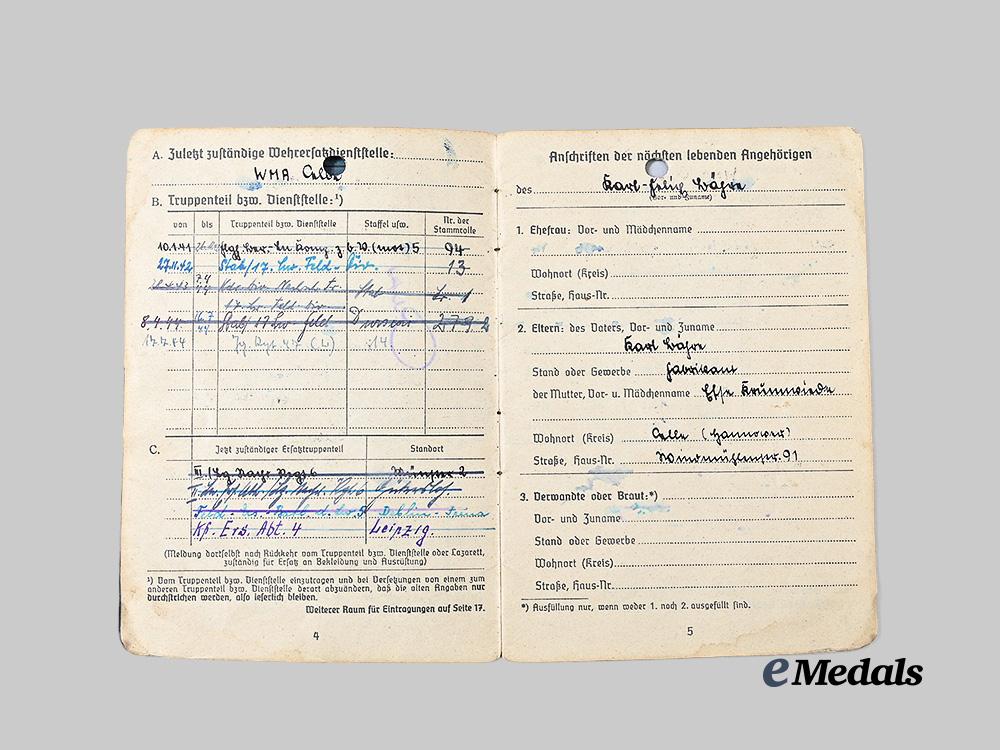 A. Zuletzt zuständige Wehrersatzdienststelle:
WMA Celle
B. Truppenteil bzw. Dienststelle:¹)
von bis Truppenteil bzw. Dienststelle Staffel usw. Nr. der Stammrolle
10.1.41 z. b. V. (mot) 5 94
27.11.42 Stab/17. Lw. Feld-Div. 13
17. Lw. Feld-Div.
8.4.44 Stab/17 Lw-Feld 279
17.7.44 Jg. Rgt. 47 (L) 14
C. Jetzt zuständiger Ersatztruppenteil Standort
Münster 2
Kf. Ers. Abt. 4 Leipzig.
(Meldung dortselbst nach Rückkehr vom Truppenteil bzw. Dienststelle oder Lazarett,
zuständig für Ersatz an Bekleidung und Ausrüstung)
¹) Vom Truppenteil bzw. Dienststelle einzutragen und bei Versetzungen von einem zum
anderen Truppenteil bzw. Dienststelle derart abzuändern, daß die alten Angaben nur
durchstrichen werden, also leserlich bleiben.
Weiterer Raum für Eintragungen auf Seite 17.
4
Anschriften der nächsten lebenden Angehörigen
des Karl- Bähre
(Vor- und Zuname)
1. Ehefrau: Vor- und Mädchenname
Wohnort (Kreis)
Straße, Haus-Nr.
2. Eltern: des Vaters, Vor- und Zuname
Karl Bähre
Stand oder Gewerbe Fabrikant
der Mutter, Vor- u. Mädchenname Else Krumwiede
Wohnort (Kreis) Celle (Hannover)
Straße, Haus-Nr. Windmühlenstr. 91
3. Verwandte oder Braut:*)
Vor- und Zuname
Stand oder Gewerbe
Wohnort (Kreis)
Straße, Haus-Nr.
*) Ausfüllung nur, wenn weder 1. noch 2. ausgefüllt sind.
5
eMedals